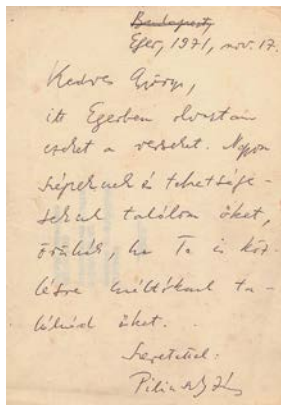 Budapest,
Eger, 1971, nov. 17.
Kedves Gyuri,
itt Egerben olvastam
ezeket a verseket. Nagyon
szépeknek és tehetsége-
seknek találom őket,
örülnék, ha Te is köz-
lésre méltóknak ta-
lálnád őket.
Szeretettel:
Pilinszky János